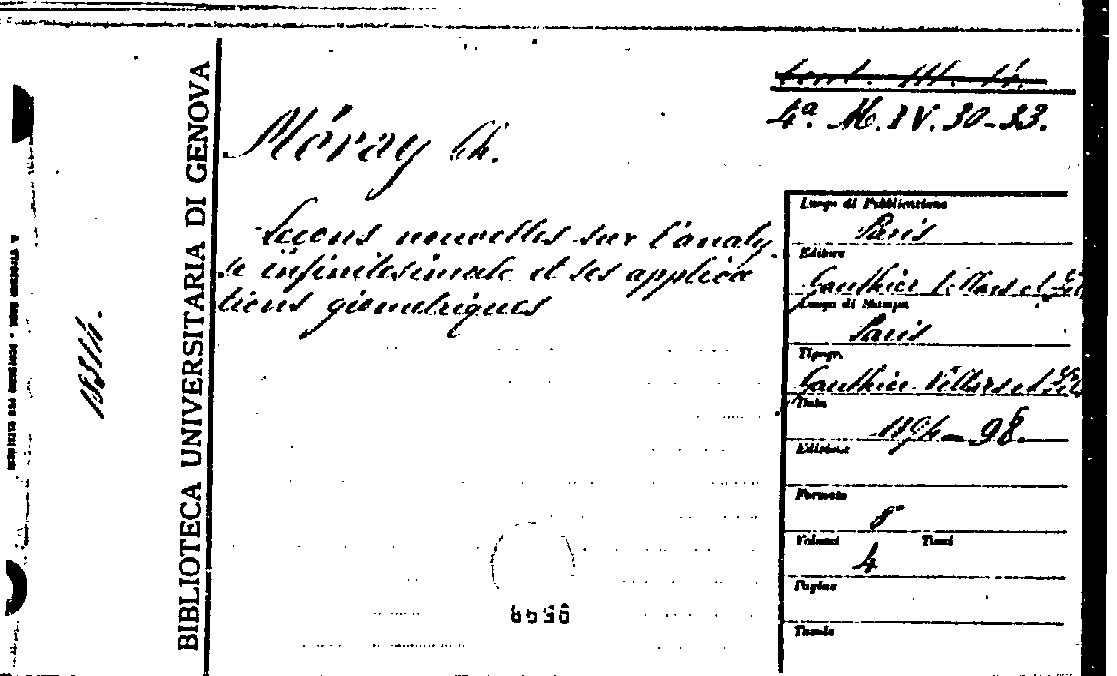 4ª. M. XV. 30-33.
Méray Ch.
Leçons nouvelles sur l'analy
se infinitesimale et ses applica
tions géometriques
BIBLIOTECA UNIVERSITARIA DI GENOVA
Luogo di Pubblicazione
Paris
Editore
Gauthier Villars et
Luogo di Stampa
Paris
Tipogr.
Gauthier Villars et
Data
1894-98
Edizione
Formato
8
Volumi Tomi
4
Pagine
Tavole